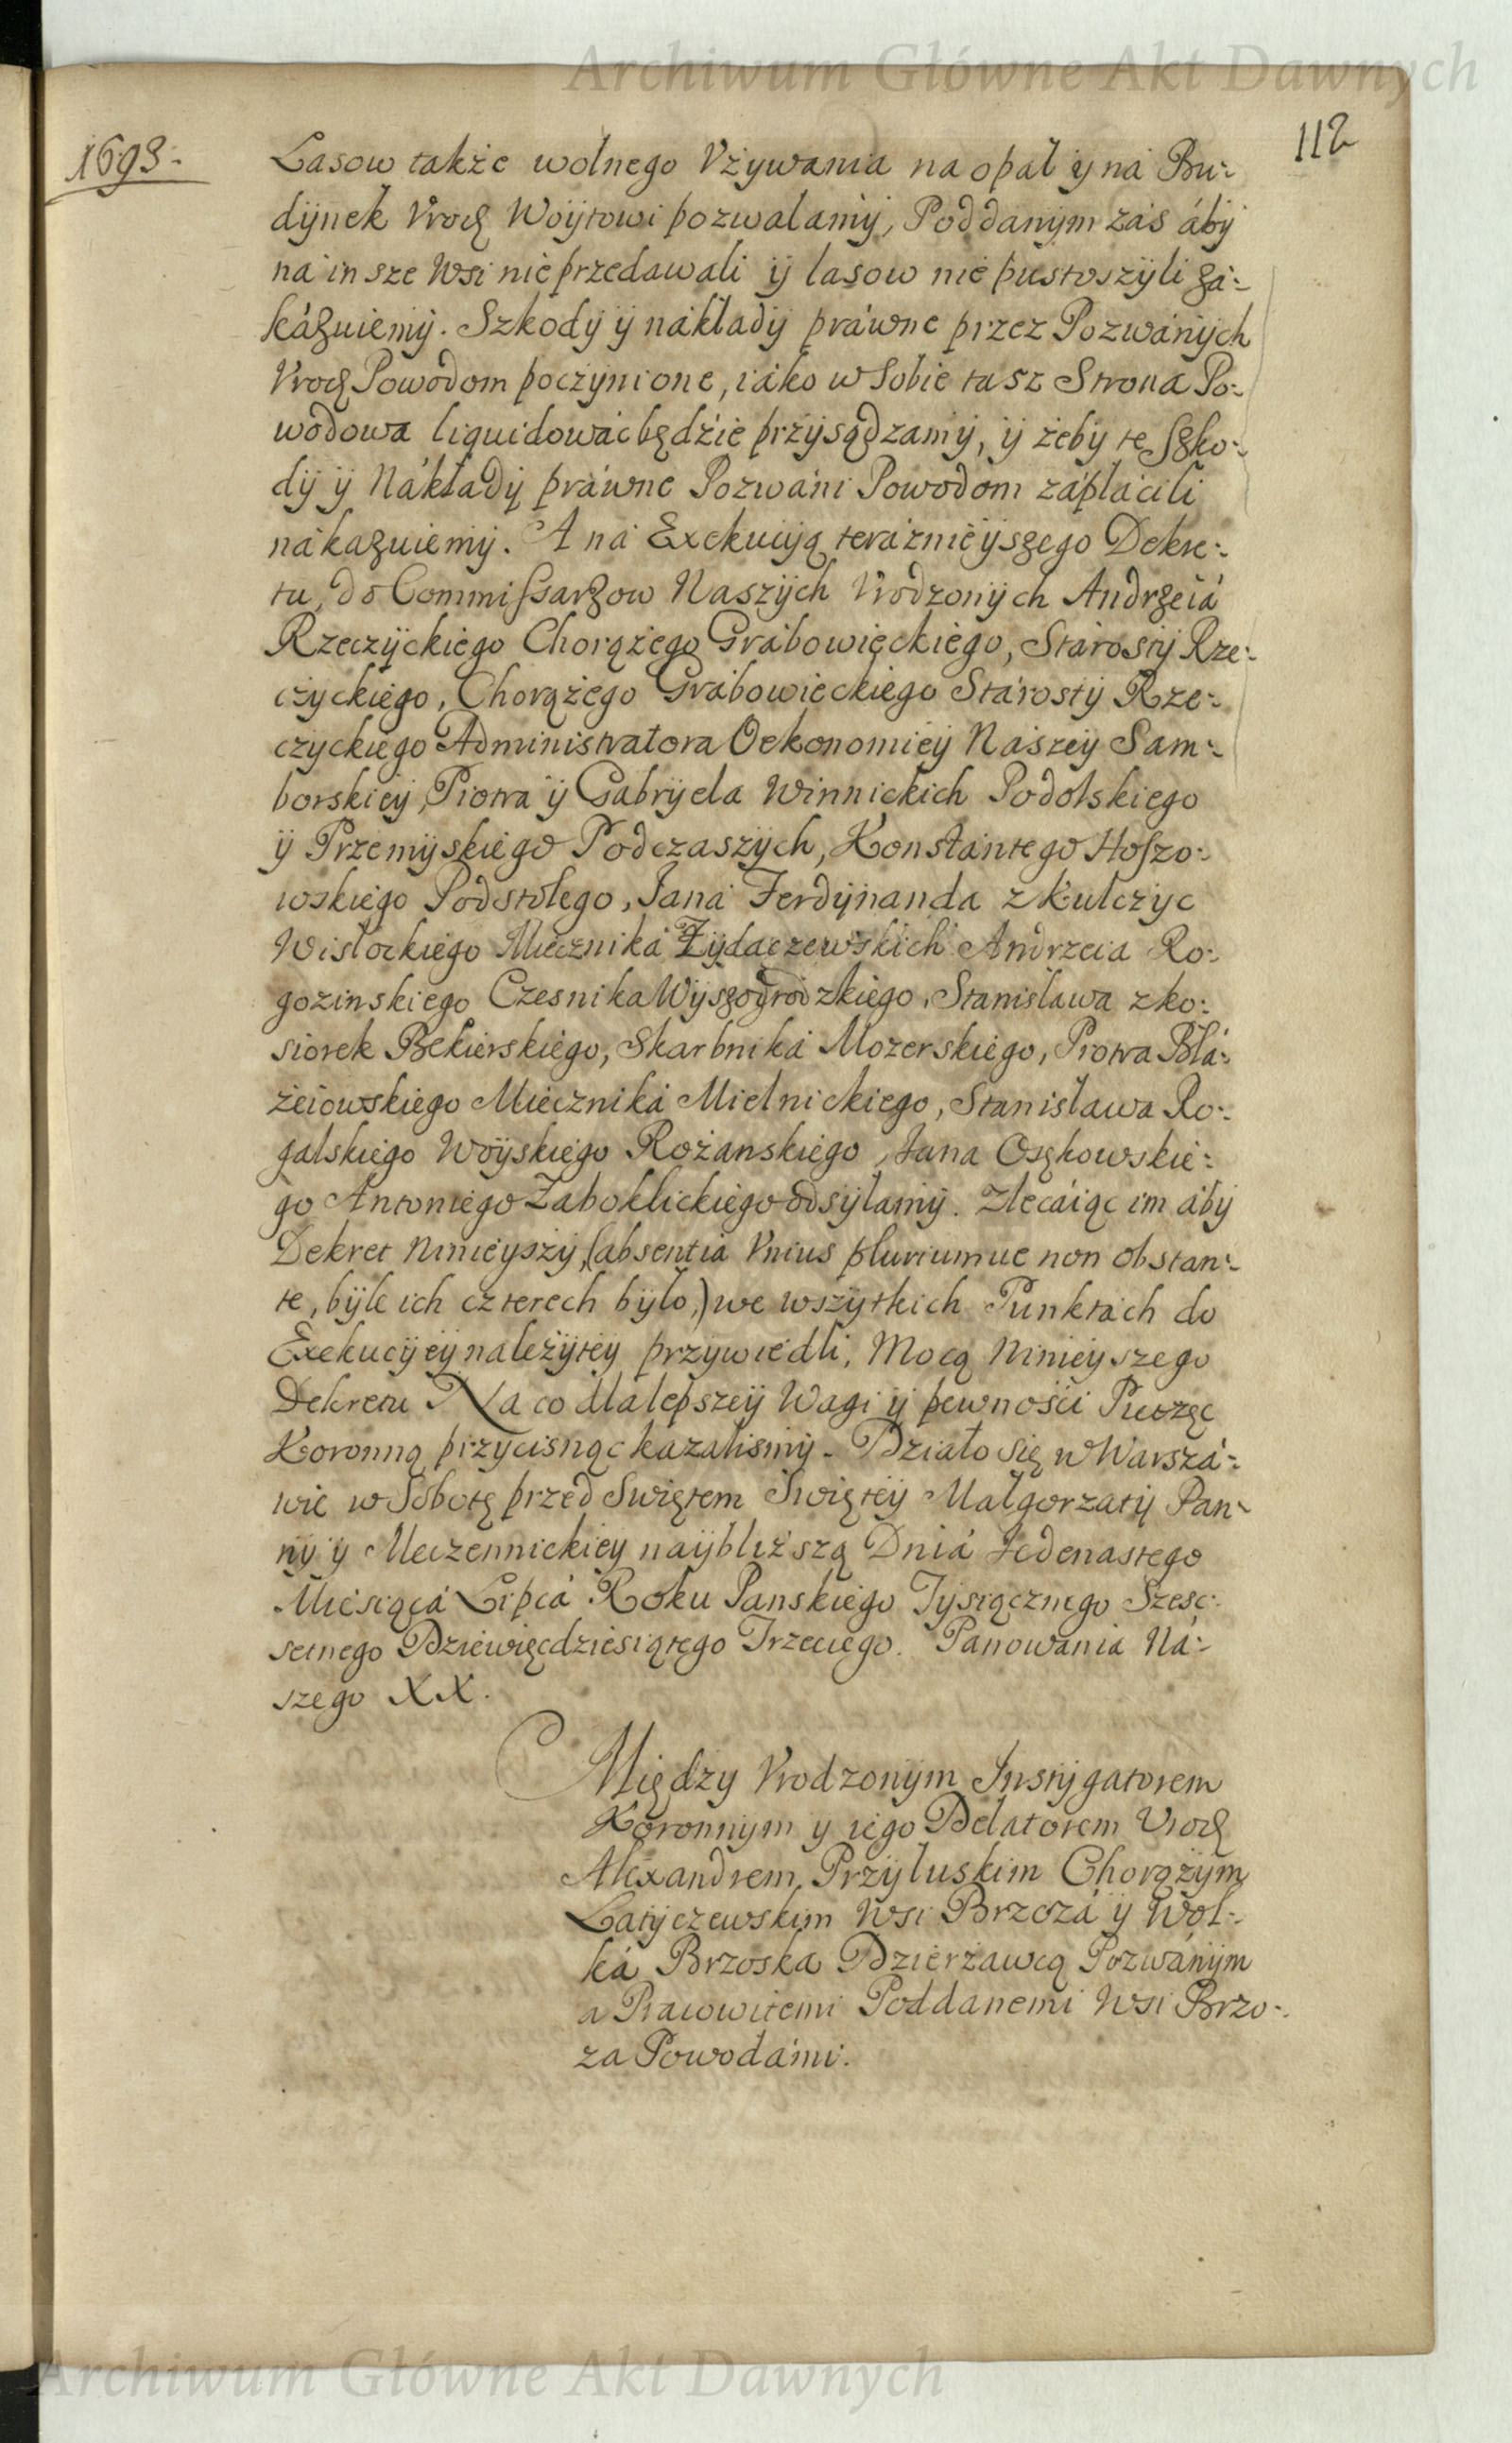 Archiwum Główne Akt Dawnych
1693.
112
Lasow także wolnego Vżywania na opał ÿ ná Bu-
dÿnek Vrodz Woÿtowi pozwalamÿ, Poddanÿm zaś ábÿ
ná insze Wsi nie przedawali ÿ lasow nie pustoszÿli zá-
kázuiemÿ. Szkodÿ ÿ nákładÿ práwne przez Pozwánÿch
Vrodz Powodom poczÿnione, iáko w Sobie ta sz Strona Po-
wodowa liquidowáć będźie przÿsądzamÿ, ÿ żebÿ te Szko-
dÿ ÿ Nákładÿ práwne Pozwáni Powodom zápłácili
nákazuiemÿ. A ná Exekucÿą teráznieÿszego Dekre-
tu, do Commissarzow Naszÿch Vrodzonÿch Andrzeiá
Rzeczÿckiego Chorążego Grábowieckiego, Stárostÿ Rze-
czÿckiego, Chorążego Grábowieckiego Stárostÿ Rze-
czÿckiego Administratora Oekonomieÿ Nászeÿ Sam-
borskieÿ, Piotra ÿ Gabrÿela Winnickich Podolskiego
ÿ Przemÿskiego Podczaszÿch, Konstántego Hoszo-
wskiego Podstolego, Janá Ferdÿnanda z Kulczÿc
Wisłockiego Mieczniká Zÿdaczewskich Andrzeia Ro-
gozinskiego Czesnika Wÿszogrodzkiego, Stanisława z Ko-
siorek Bekierskiego, Skarbniká Mozerskiego, Piotra Błá-
żeiowskiego Miecznika Mielnickiego, Stanisława Ro-
galskiego Woÿskiego Rożanskiego, Jana Oszkowskie-
go Antoniego Zaboklickiego odsÿłamÿ. Zlecáiąc im ábÿ
Dekret Ninieÿszÿ, (absentia Vnius pluriumue non obstan-
te, bÿle ich czterech bÿło,) we wszÿtkich Punktách do
Exekucÿeÿ należÿteÿ przÿwiedli, Mocą Ninieÿszego
Dekretu Na co dla lepszeÿ Wagi ÿ pewnośći Pieczęć
Koronną przÿcisnąć kazalismÿ. Dziáło się w Warszá-
wie w Sobotę przed Swiętem Swięteÿ Małgorzatÿ Pan-
nÿ ÿ Meczennickieÿ naÿbliższą Dniá Jedenastego
Miesiącá Lipcá Roku Panskiego Tÿsiącznego Szesc-
setnego Dziewięćdziesiątego Trzeciego. Panowania Ná-
szego XX.
Międzÿ Vrodzonÿm Instÿgatorem
Koronnÿm ÿ iego Delatorem Vrodz
Alexandrem Przÿłuskim Chorążÿm
Latÿczewskim Wsi Brzozá ÿ Wol-
ká Brzoska Dzierżawcą Pozwánÿm
a Pracowitemi Poddanemi Wsi Brzo-
za Powodámi.
Archiwum Główne Akt Dawnych